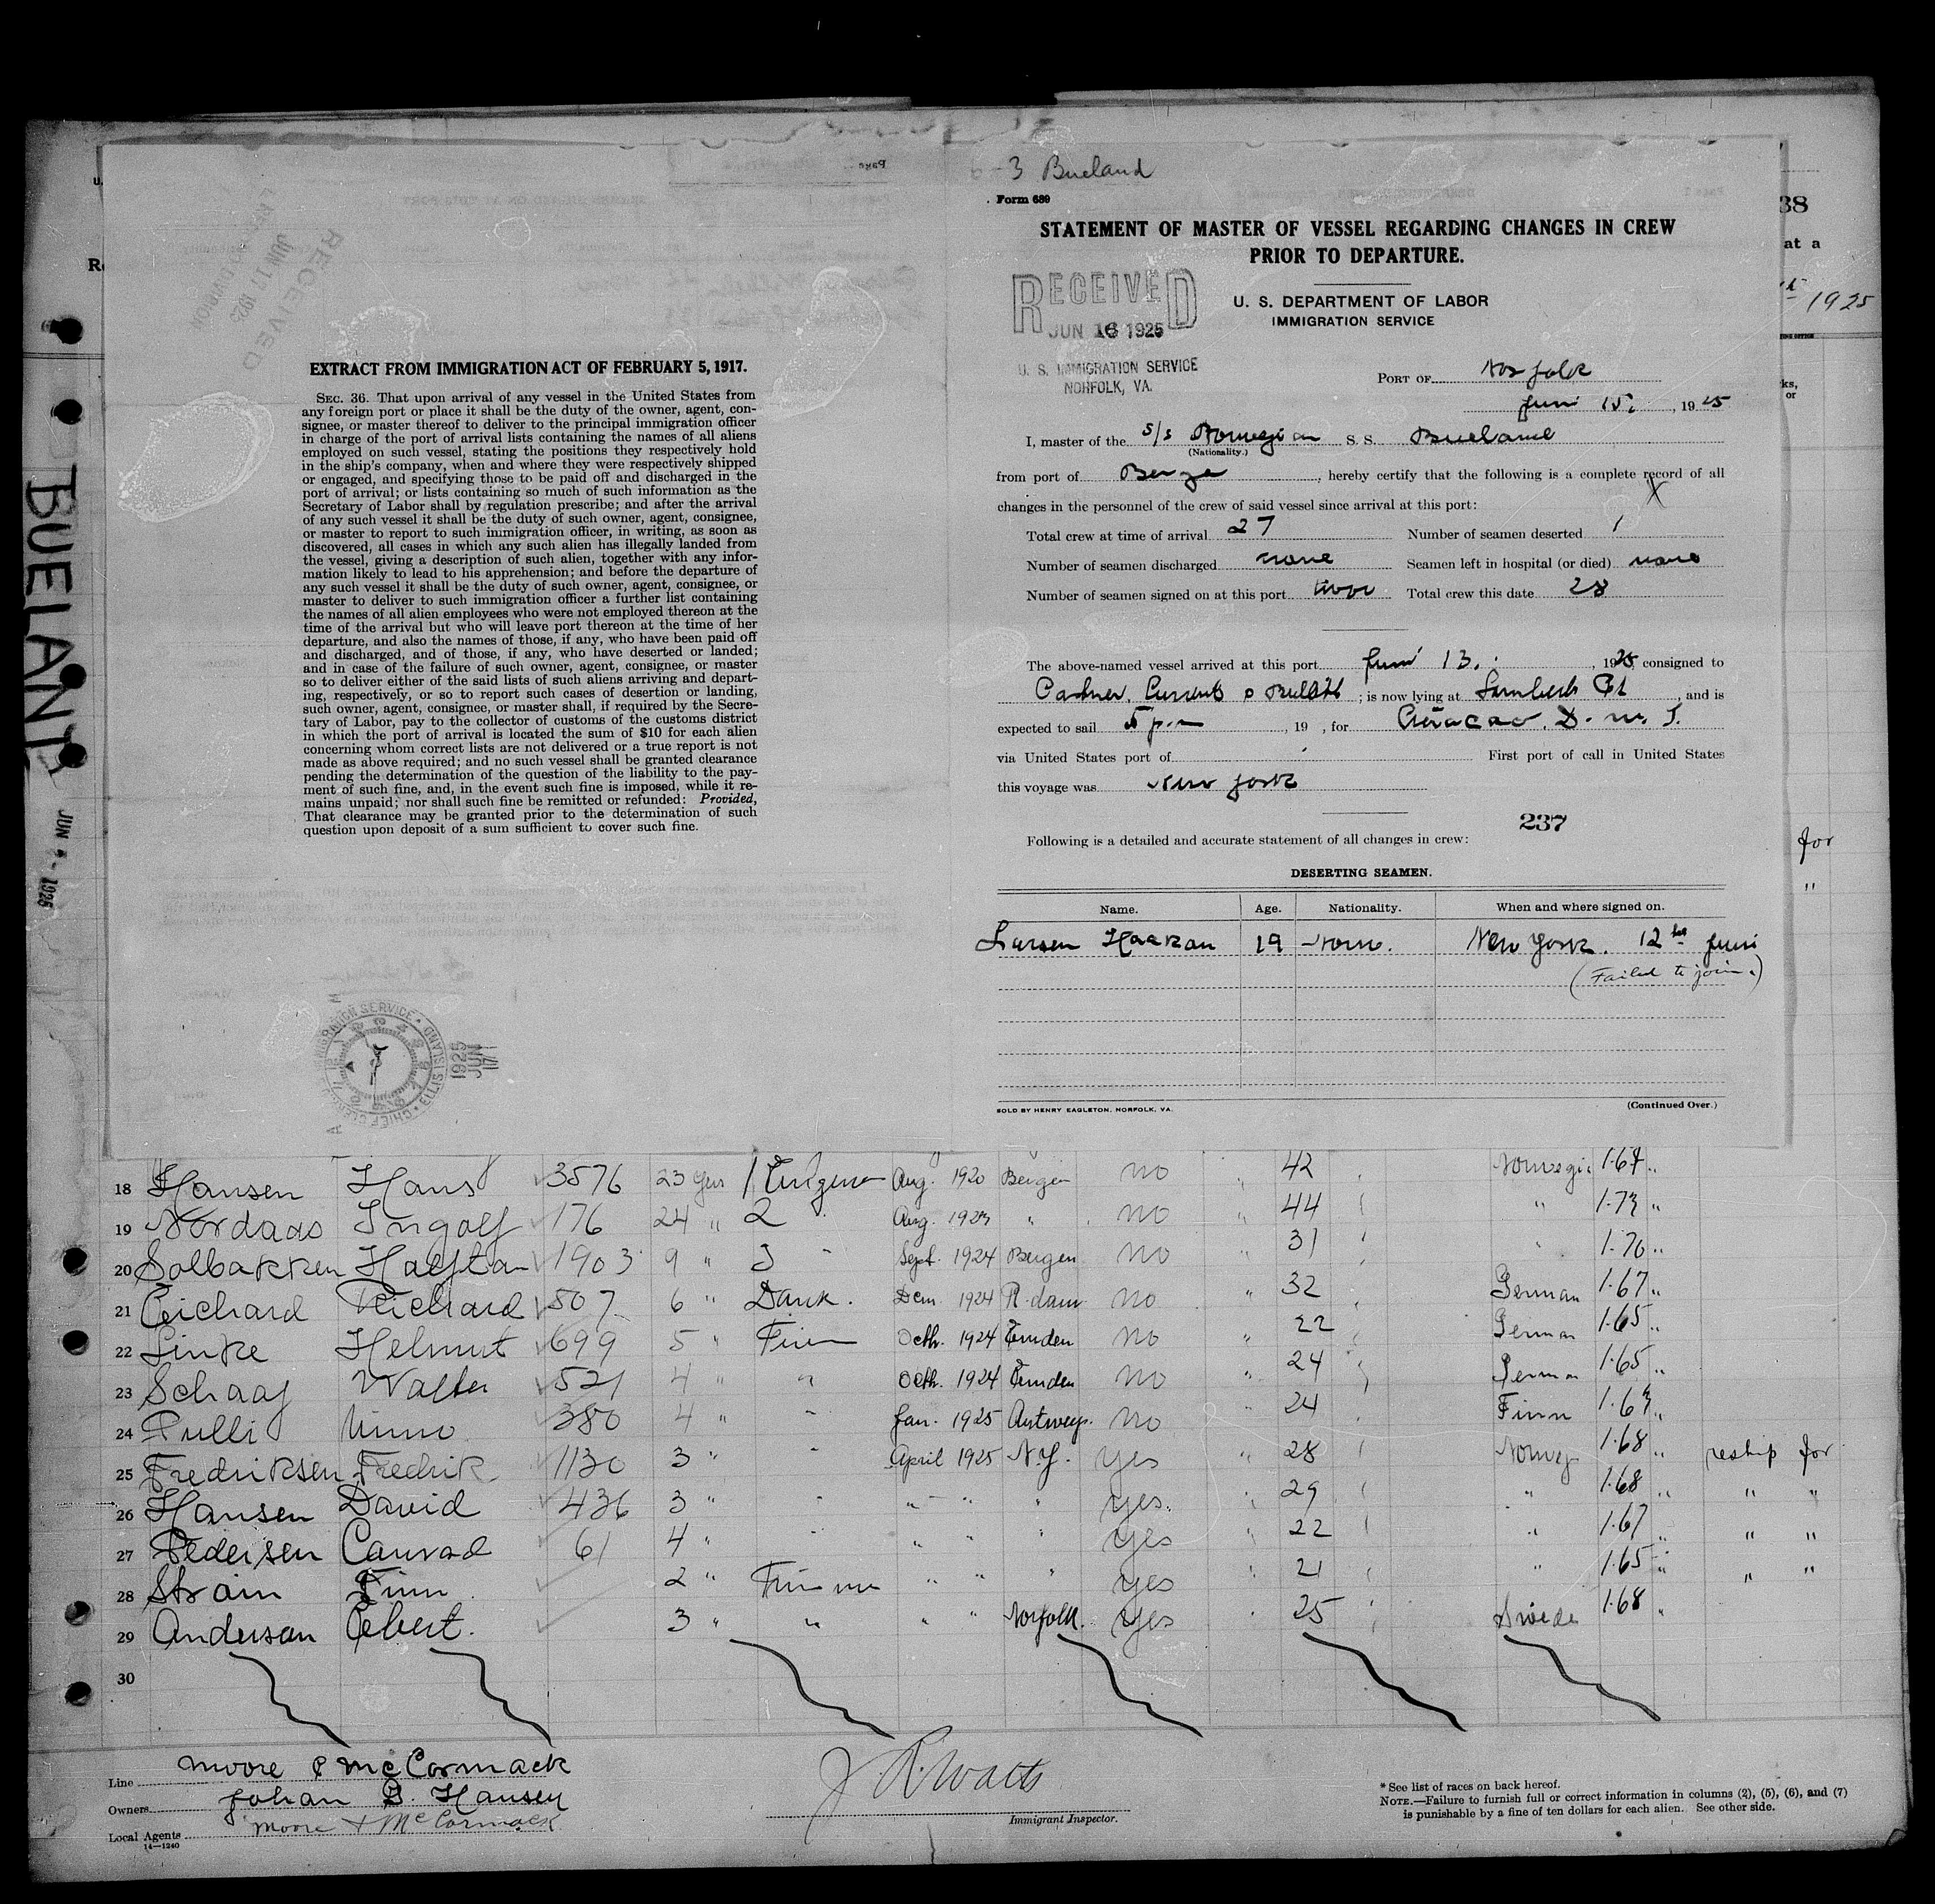 6-3 Bueland
Form 689
STATEMENT OF MASTER OF VESSEL REGARDING CHANGES IN CREW
PRIOR TO DEPARTURE.
U. S. DEPARTMENT OF LABOR
IMMIGRATION SERVICE
RECEIVED
JUN 16 1925
U. S. IMMIGRATION SERVICE
NORFOLK, VA.
PORT OF Norfolk
Juni 15, 1925
I, master of the s/s Norwegian S. S. Bueland
(Nationality.)
from port of, hereby certify that the following is a complete record of all
changes in the personnel of the crew of said vessel since arrival at this port:
Total crew at time of arrival 27 Number of seamen deserted 1
Number of seamen discharged none Seamen left in hospital (or died) none
Number of seamen signed on at this port two Total crew this date 28
The above-named vessel arrived at this port Juni 13. , 1925 consigned to
; is now lying at Lamberts Pt , and is
expected to sail 5 pm , 19 , for Curacao. D. W. I.
via United States port of First port of call in United States
this voyage was New York
237
Following is a detailed and accurate statement of all changes in crew:
DESERTING SEAMEN.
Name. Age. Nationality. When and where signed on.
Larsen Haakan 19 Norw. New York. 12 Juni
(Failed to join.)
SOLD BY HENRY EAGLETON, NORFOLK, VA. (Continued Over.)
RECEIVED
JUN 17 1925
EXTRACT FROM IMMIGRATION ACT OF FEBRUARY 5, 1917.
SEC. 36. That upon arrival of any vessel in the United States from
any foreign port or place it shall be the duty of the owner, agent, con-
signee, or master thereof to deliver to the principal immigration officer
in charge of the port of arrival lists containing the names of all aliens
employed on such vessel, stating the positions they respectively hold
in the ship's company, when and where they were respectively shipped
or engaged, and specifying those to be paid off and discharged in the
port of arrival; or lists containing so much of such information as the
Secretary of Labor shall by regulation prescribe; and after the arrival
of any such vessel it shall be the duty of such owner, agent, consignee,
or master to report to such immigration officer, in writing, as soon as
discovered, all cases in which any such alien has illegally landed from
the vessel, giving a description of such alien, together with any infor-
mation likely to lead to his apprehension; and before the departure of
any such vessel it shall be the duty of such owner, agent, consignee, or
master to deliver to such immigration officer a further list containing
the names of all alien employees who were not employed thereon at the
time of the arrival but who will leave port thereon at the time of her
departure, and also the names of those, if any, who have been paid off
and discharged, and of those, if any, who have deserted or landed;
and in case of the failure of such owner, agent, consignee, or master
so to deliver either of the said lists of such aliens arriving and depart-
ing, respectively, or so to report such cases of desertion or landing,
such owner, agent, consignee, or master shall, if required by the Secre-
tary of Labor, pay to the collector of customs of the customs district
in which the port of arrival is located the sum of $10 for each alien
concerning whom correct lists are not delivered or a true report is not
made as above required; and no such vessel shall be granted clearance
pending the determination of the question of the liability to the pay-
ment of such fine, and, in the event such fine is imposed, while it re-
mains unpaid; nor shall such fine be remitted or refunded: Provided,
That clearance may be granted prior to the determination of such
question upon deposit of a sum sufficient to cover such fine.
IMMIGRATION SERVICE ELLIS ISLAND CHIEF CLERK
1925 JUN 17
BUELAND
JUN 1925
38
at a
1925
ks,
or
for
"
18 Hansen Hans 3576 23 yrs 1 Aug. 1920 Bergen no 42 1.64 "
19 Nordaas Ingolf 176 24 " 2 " Aug. 1923 " no " 44 " 1.73 "
20 Solbakken Halftan 1903 9 " 3 " Sept. 1924 Bergen no " 31 " 1.70 "
21 Richard 507 6 " Dank. Dcm. 1924 R.dam no " 32 German 1.67 "
22 Linke Helmut 699 5 " Octb. 1924 Emden no 22 German 1.65 "
23 Schaaf Walter 521 4 " " Octb. 1924 Emden no " 24 German 1.65 "
24 Pulli 380 4 " " Jan. 1925 Antwerp. no " 24 Finn 1.63 "
25 Fredriksen Fredrik 1130 3 " " April 1925 N.Y. yes " 28 Norweg 1.68 " reship for
26 Hansen David 436 3 " " " " " yes. " 29 " 1.68 " " "
27 Pedersen Conrad 61 4 " " " " " yes " 22 " 1.67 " " "
28 Strain Finn 2 " " " " yes " 21 " 1.65 " " "
29 Andersen 3 " " " " Norfolk. yes 25 Swede 1.68 "
30
Line Moore & McCormack
Owners Johan G. Hansen
Local Agents Moore & McCormack
14-1240
J R Watts
Immigrant Inspector.
* See list of races on back hereof.
NOTE.—Failure to furnish full or correct information in columns (2), (5), (6), and (7)
is punishable by a fine of ten dollars for each alien. See other side.